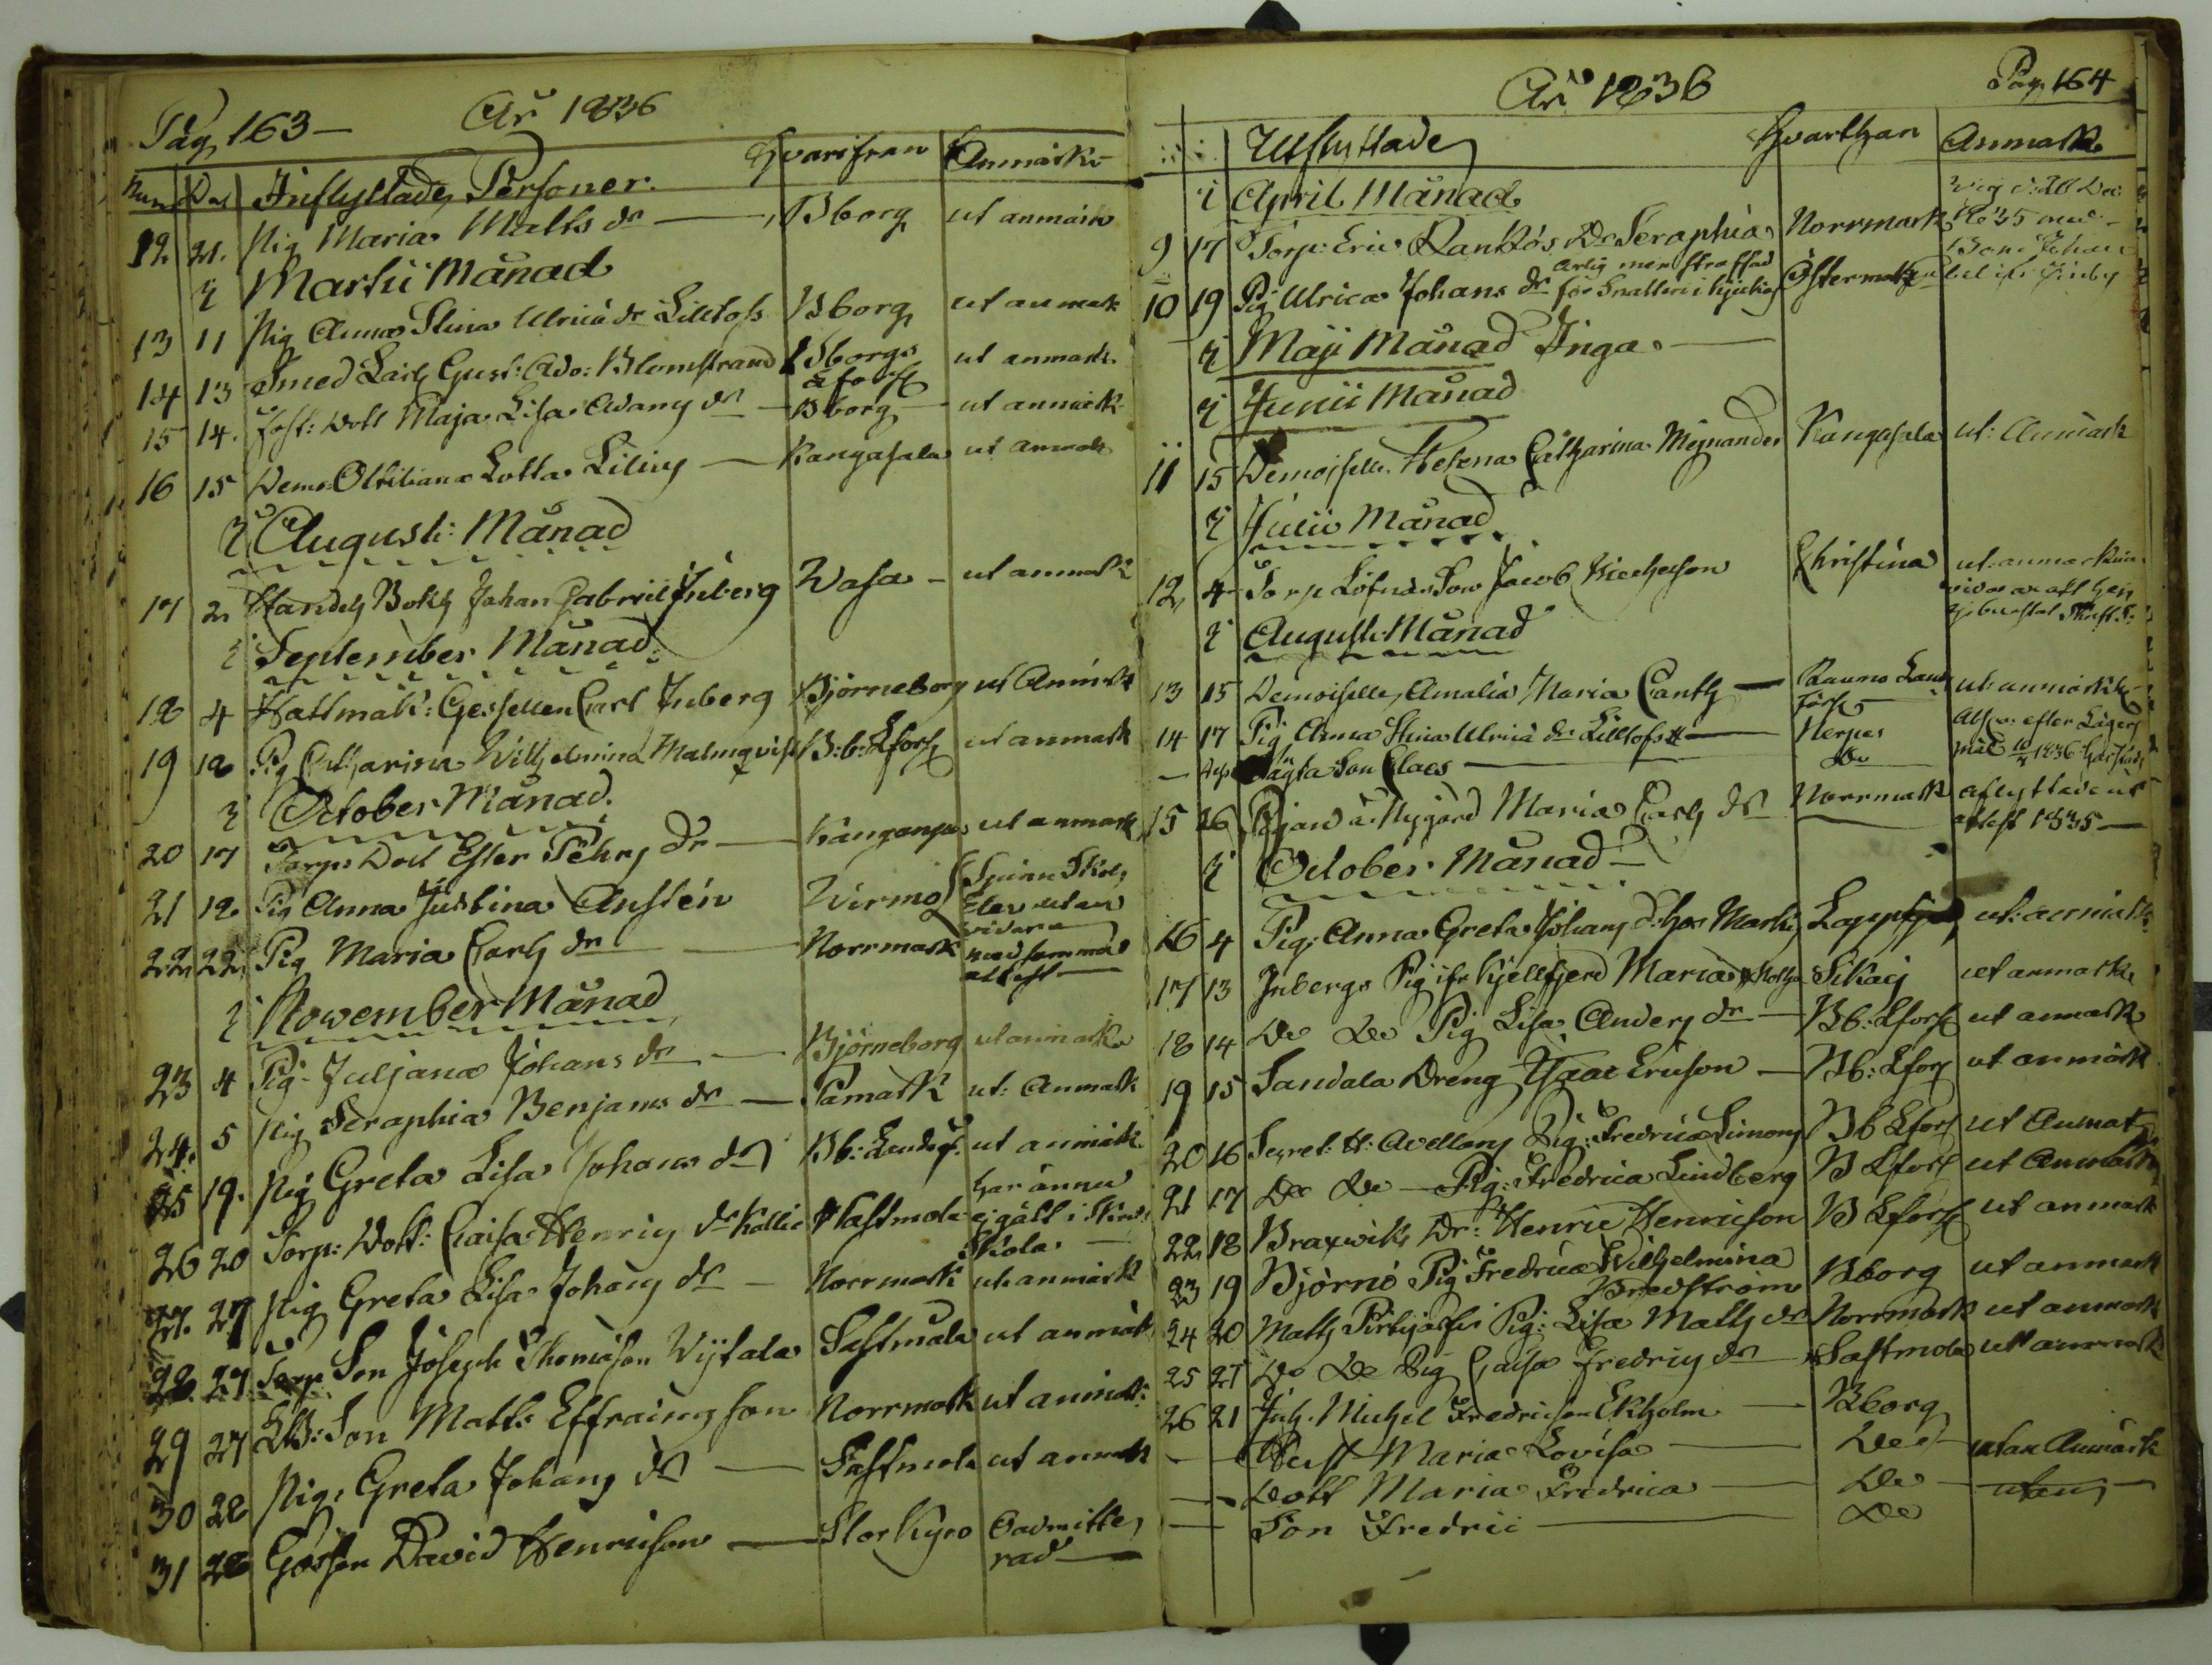 Pag 163 –
År 1836
Num Dat Inflyttade Personer. Hvarifran Anmärk:
12. 21. Pig Maria Matts dr — Bborg ut anmärk
i Martii Månad
13 11 Pig Anna Stina Ulrica dr Lilltofs Bborg ut anmark
14 13 Smed Lärl Gust: Ado: Blomstrand Bborgs ut anmark
15 14. Dott Maja Lisa Adamg dr — Bborg — ut anmärk
16 15 Dems Ottiliana Lotta Lilius — Kangasala ut anmark
i Augusti: Månad
17 2 Handels Bokh Johan Gabriel Inberg Wasa – ut anmark
i September Månad
18 4 Hattmak: Gesellen Carl Inberg Björneborg ut Anmärk
19 18 Pig Catharina Wilhelmina Malmqvist B:b: Lfors ut anmark
i October Månad.
20 17 Torp: Dott Ester Pehrs dr — Kånganpä ut anmark
21 18. Pig Anna Justina Austén Virmo Spinn Skol
Elev utan
vidare
22 22 Pig Maria Carls dr — Norrmark med samma
attest —
i Nowember Månad
23 4 Pig Juljana Johans dr — Björneborg ut anmärk
24. 5 Pig Seraphia Benjams dr — Påmark ut: Anmark
25 19. Pig Greta Lisa Johans dr Bb: Landsf. ut anmärk
har ännu
26 20 Torp: Dott: Caisa Henrics dr Kallio Sastmola ej gått i Skrift
Skola —
27. 27 Pig Greta Lisa Johans dr — Norrmark ut: anmärk
28. 27. Torp Son Joseph Thomasson Vijtala Sastmola ut anmärk
29 27 Son Matts Effraimsson Norrmark ut anmark:
30 28 Pig: Greta Johans dr — Sastmola ut anmark
31 28 Gossen David Henricson — Storkyro Oadmitte
rad —
År 1836
Pag. 164
Utflyttade Hvarthan Anmark
i April Månad
9 17 Torp: Eric Rankös Dr Seraphia Norrmark
arlig men straffad
10 19 Pig Ulrica Johans dr för Snatteri i kyrkio Östermark
i Maji Månad Inga. —
i Junii Månad
11 15 Demoiselle Helena Catharina Mignander Kangasala ut: Anmärk
i Julii Månad
12 4 Torp Löfnäs Son Jacob Michelson Christina ut: anmarkning
i Augusti Månad
13 15 Demoiselle Amalia Maria Canth — Raumo Land ut anmärk
förs
14 17 Pig Anna Stina Ulrica dr Lilltofs — Nerpes
— ägta Son Claes — Do
15 26 Pigan å Nygård Maria Carls dr Norrmark aflyttade ut
attest 1835 —
i October Månad —
16 4 Pig: Anna Greta Johans dr Lappfjerd ut: anmärk
17 13 Inbergs Pig ifr Kjellfjerd Maria Siikais ut anmark
18 14 Do Do Pig Lisa Anders dr — Bb: Lfors ut anmark
19 15 Sandala Dreng Isaac Ericson — Bb: Lfors ut anmärk
20 16 Secret: H: Avellans Pig: Fredrica Simons Bb Lfors ut Anmark
21 17 Do Do — Pig: Fredrica Lindberg B Lfors ut Anmärk
22 18 Braxwiks Dr: Henric Henricson B Lfors ut anmark
23 19 Björnö Pig Fredrica Wilhelmina
Bredström Bborg ut anmark
24 20 Matts Pirtijärfvi Pig: Lisa Matts dr Norrmark ut anmark
25 21 Do Do Pig Caisa Fredrics dr Sastmola ut anmark
26 21 Inh. Michel Fredricson Ekholm — Bborg
— — Hust Maria Lovisa — Do utan Anmärk
— Dott Maria Fredrica — Do — utan —
— Son Fredric — Do